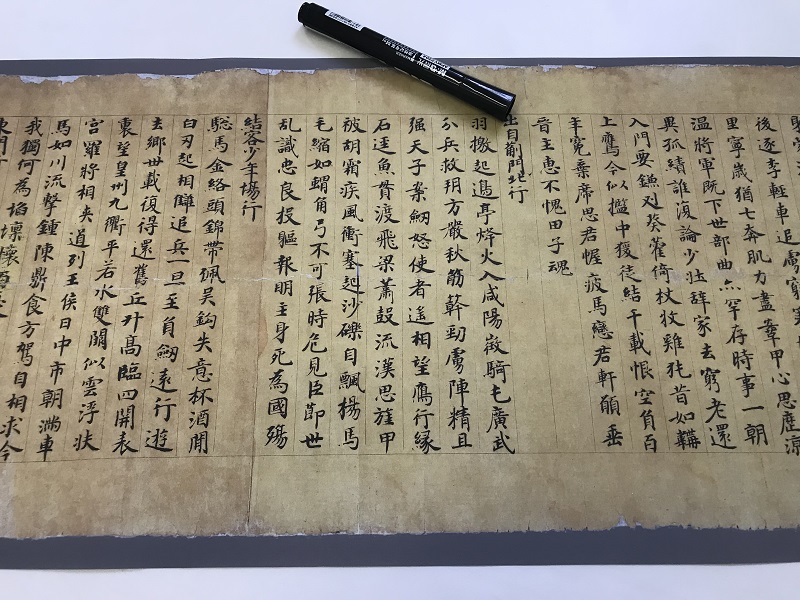 後逐李輕車追虜窮塞
里寧歲猶七奔肌力盡鞍甲心思歷涼
溫將軍既下世部曲亦罕存時事一朝
異孤績誰復論少壯辭家去窮老還
入門要鎌刈葵藿倚杖牧雞㹠昔如韝
上鷹今似檻中猨徒結千載恨空負百
年冤棄席思君幄疲馬戀君軒願垂
晉主惠不愧田子魂
出自薊門北行
羽檄起邊亭烽火入咸陽徵騎屯廣武
分兵救朔方嚴秋筋簳勁虜陣精且
强天子案劒怒使者遙相望鴈行緣
石逕魚貫渡飛梁簫鼓流漢思旌甲
被胡霜疾風衝塞起沙礫自飄楊馬
毛縮如蝟角弓不可張時危見臣節世
亂識忠良投軀報明主身死為國殤
結客少年場行
驄馬金絡頭錦帶珮吳鈎失意杯酒間
白刃起相讎追兵一旦至負劒遠行遊
去鄉卅載復得還舊丘升高臨四開表
裏望皇州九衢平若水雙闕似雲浮扶
宮羅將相夾道列王侯日中市朝滿車
馬如川流擊鍾陳鼎食方駕自相求今
我獨何為埳壈懷百憂
東門行